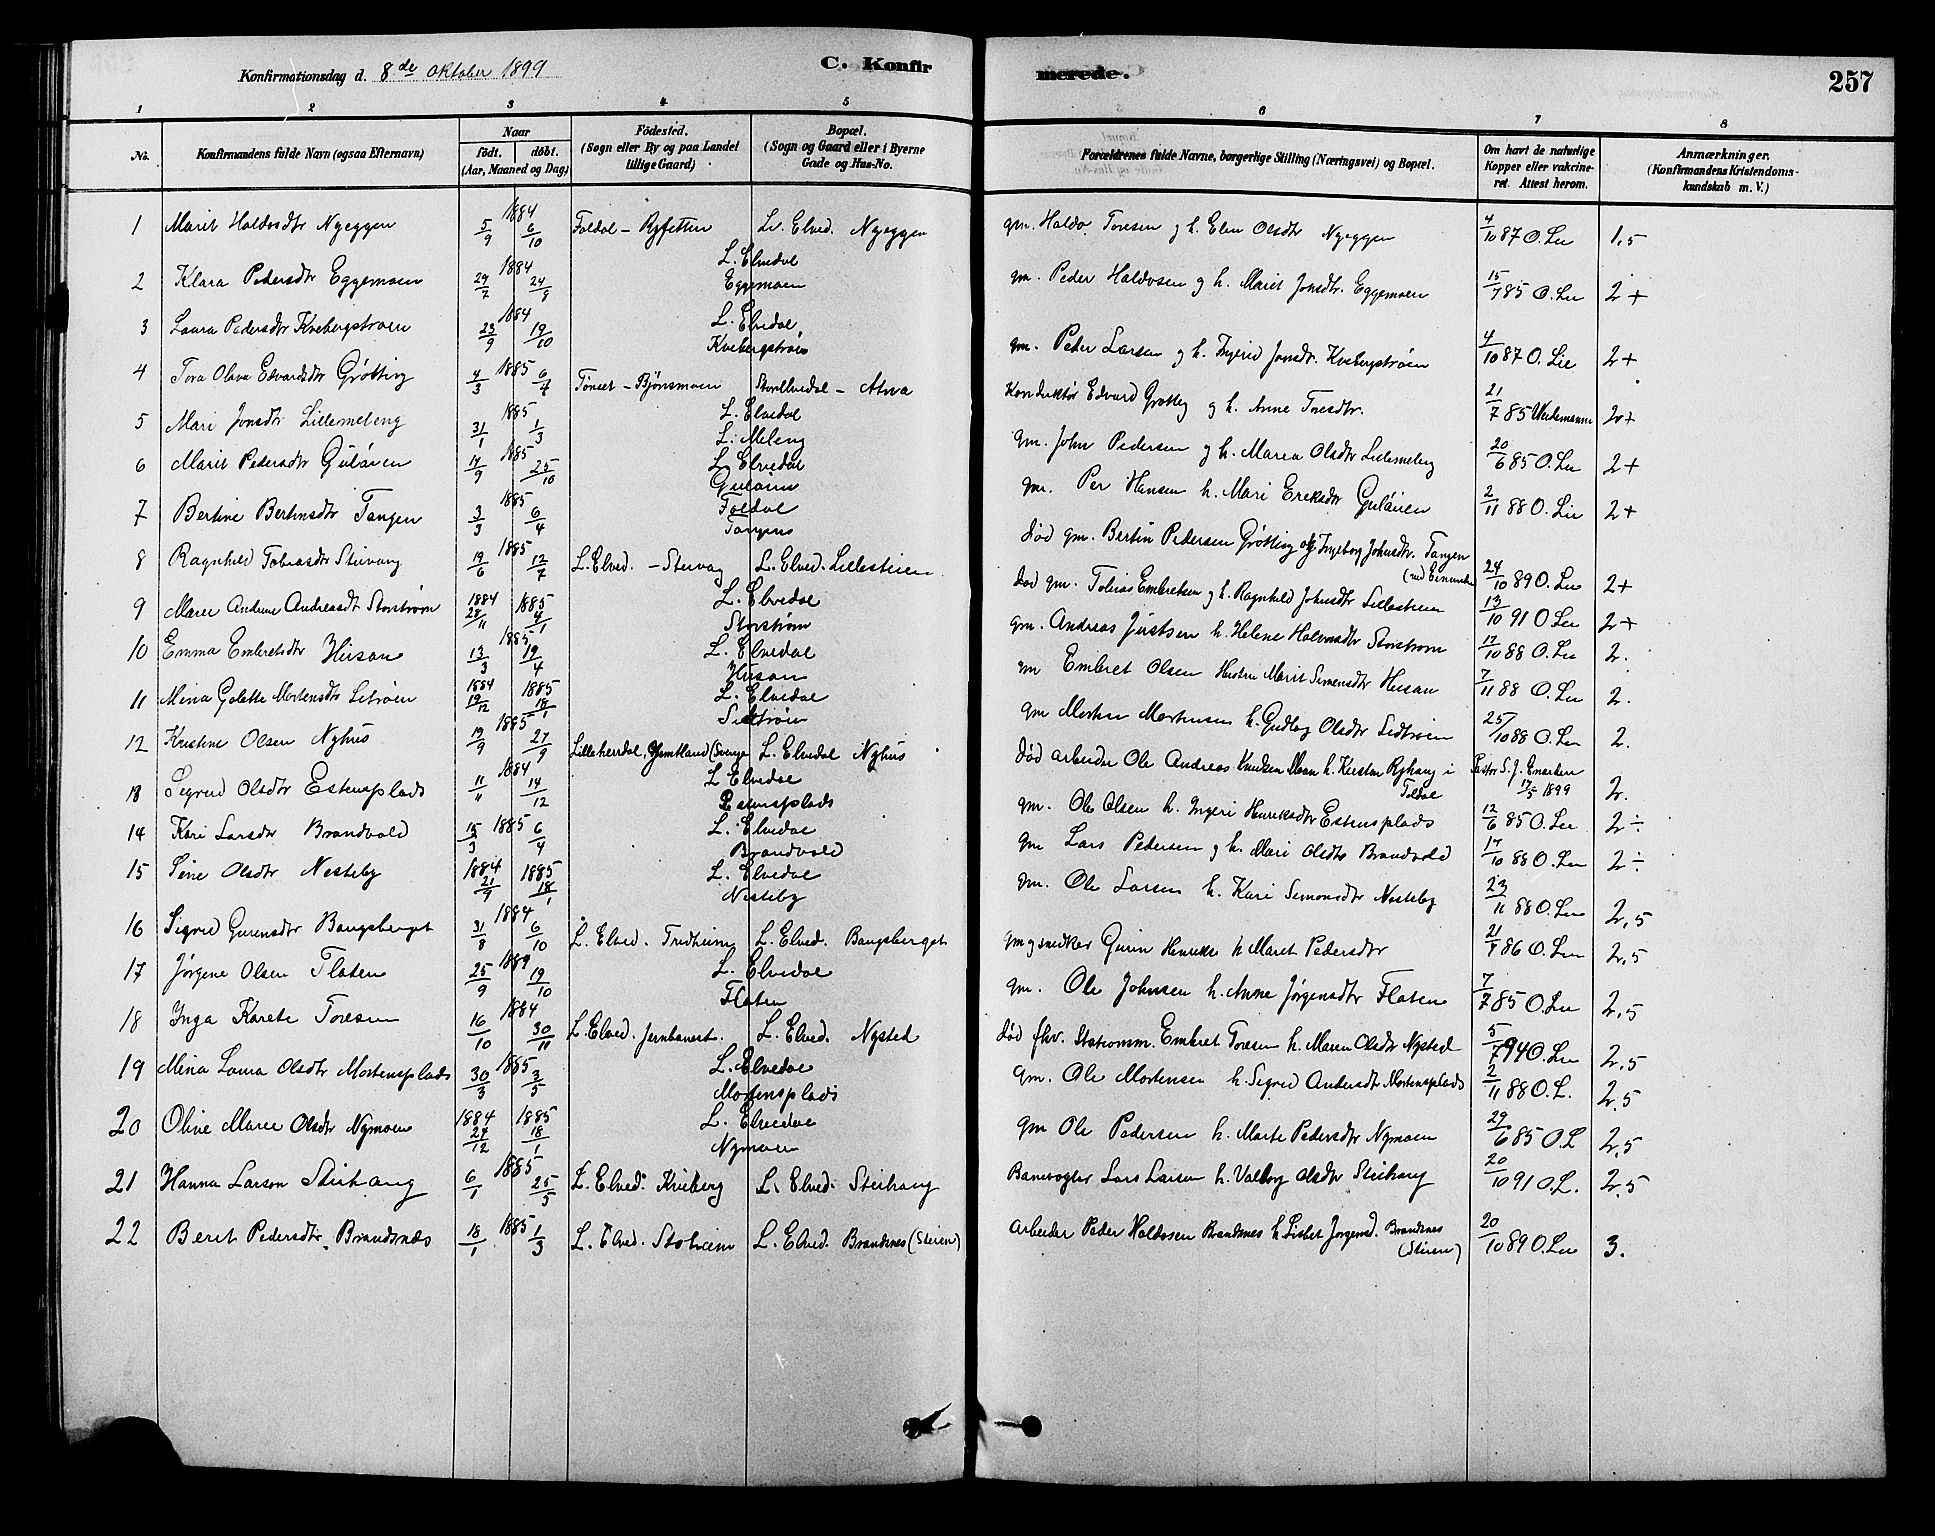 Konfirmationsdag d. 8de Oktober 1899
C. Konfir
merede.
257
1 2 3 4 5 6 7 8
No.
Konfirmandens fulde Navn (ogsaa Efternavn)
Naar
födt. döbt.
(Aar, Maaned og Dag)
Födested.
(Sogn eller By og paa Landet
tillige Gaard)
Bopæl.
(Sogn og Gaard eller i Byerne
Gade og Hus-No.
Forældrenes fulde Navne, borgerlige Stilling (Næringsvei) og Bopæl.
Om havt de naturlige
Kopper eller vakcine-
ret. Attest herom.
Anmærkninger.
(Konfirmandens Kristendoms-
kundskab m. V.)
1 Marit Haldosdtr Nyeggen 1884 5/9 6/10 Foldal - L. Elved. Nyeggen gm. Haldo Toresen g h. Elen Olsdtr Nyeggen 4/10 87 O. Lie 1,5
2 Klara Pedersdtr Eggemoen 1884 29/7 24/8 L. Elvedal Eggemoen gm. Peder Haldosen g h. Marit Jonsdtr. Eggemoen 15/7 85 O. Lie 2+
3 Laura Pedersdtr Kvebergstrøen 1884 23/9 19/10 L. Elvedal, Kvebergstrøen gm. Peder Larsen g h. Ingrid Jonsdtr. Kvebergstrøen 4/10 87 O. Lie 2+
4 Tora Olava Edvardsdtr Grøtting 1885 4/3 6/4 Tönset - Bjørsmoen Storelvedal - Atna Konduktør Edvard Grøtting g h. Anne Toresdtr. 21/7 85 2+
5 Mari Jonsdtr Lillemeleng 1885 31/1 1/3 L. Elvedal L. Meleng gm. John Pedersen g h. Maren Olsdtr Lillemeleng 20/6 85 O. Lie 2+
6 Marit Pedersdtr Guløien 1885 14/9 25/10 L. Elvedal Guløien gm. Per Hansen h. Mari Ereksdtr Guløien 2/11 88 O. Lie 2+
7 Bertine Bertinsdtr Tangen 1885 3/3 6/4 Foldal Tangen død gm. Bertin Pedersen Grøtting og Ingeborg Johnsdtr. Tangen 24/10 89 O. Lie 2+
8 Ragnhild Tobiasdtr Steivang 1885 19/6 12/7 L. Elved. - Steivag L. Elved. Lillesteien død gm. Tobias Embretsen g h. Ragnhild Johnsdtr Lillesteien 13/10 91 O Lie 2+
9 Maren Andrine Andreasdt Storstrøm 1884 28/11 1885 4/1 L. Elvedal Storstrøm gm. Andreas Justsen h. Helene Halvorsdtr Storstrøm 17/10 88 O. Lie 2.
10 Emma Embretsdtr Husan 1885 13/3 19/4 L. Elvedal Husan gm Embret Olsen Hustru Marit Simensdtr Husan 7/11 88 O. Lie 2.
11 Mina Golette Mortensdtr Setrøen 1884 19/12 1885 18/1 L. Elvedal gm Morten Mortensen h. Gudlog Olsdtr 25/10 88 O. Lie 2.
12 Kristine Olsen Nyhus 1885 19/9 27/9 Lilleherrdal, Jemtland (Sverige L. Elvedal Nyhus død arbeider Ole Andreas Knudsen Moan h. Kirsten Ryhaug i Foldal Pastor S. J. 17/5 1899 2.
13 Sigrid Olsdtr Estensplads 1884 11/11 14/12 L Elvedal Estensplads gm. Ole Olsen h. Ingeri Henriksdtr Estensplads 12/6 85 O. Lie 2÷
14 Kari Larsdtr Brandvold 1885 15/3 6/4 L. Elvedal Brandvold gm Lars Pedersen g h. Mari Olsdtr Brandvold 17/10 88 O. Lie 2÷
15 Sine Olsdtr Nesteby 1884 21/9 1885 18/1 L. Elvedal Nesteby gm. Ole Larsen h. Kari Simonsdtr Nesteby 23/11 88 O. Lie 2,5
16 Sigrid Gurensdtr Baugsberget 1884 31/8 6/10 L. Elved. Tredheim L. Elved. Baugsberget gm g snedker Gurin Henriks h Maret Pedersdtr 21/7 86 O. Lie 2,5
17 Jørgine Olsen Flaten 1889 25/9 19/10 L. Elvedal Flaten gm. Ole Johnsen h. Anne Jørgensdtr Flaten 7/7 85 O. Lie 2,5
18 Inga Karete Toresen 1884 16/10 30/11 L. Elved. Jernbanest. L. Elved. Nysted død fhv. Stationsm. Embret Toresen h. Maren Olsdtr Nysted 5/7 94 O. Lie 2,5
19 Mina Laura Olsdtr Mortensplads 1885 30/3 3/5 L. Elvedal Mortensplads gm. Ole Mortensen h. Sigrid Andersdt Mortensplads 2/11 88 O. L. 2,5
20 Oline Marie Olsdtr Nymoen 1884 27/12 1885 18/1 L. Elvedal Nymoen gm Ole Pedersen h. Marte Pedersdtr Nymoen 29/6 85 O. L 2,5
21 Hanna Larson Steihaug 1885 6/1 25/5 L. Elved. Kveberg L. Elved. Steihaug Banevogter Lars Larsen h. Valborg Olsdtr Steihaug 20/10 91 O. L. 2,5
22 Berit Pedersdtr. Brandsnæs 1885 18/1 1/3 L. Elved. L. Elved. Brandsnes (Steien) Arbeider Peder Haldosen Brandsnes h. Lisbet Jørgensd. Brandsnes (Steien) 20/10 89 O. Lie 3.